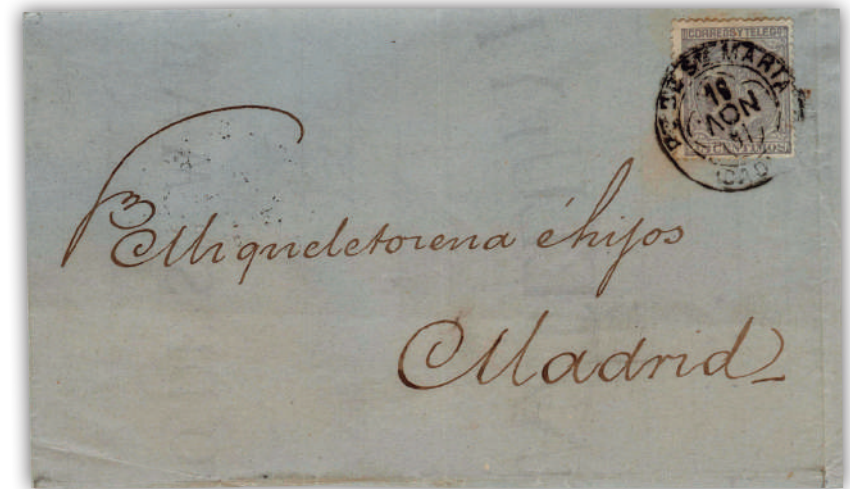 CORREOS Y TELEGS
Pº DE Sª MARIA
16
NOV
81
CENTIMOS
Miqueletorena é hijos
Madrid